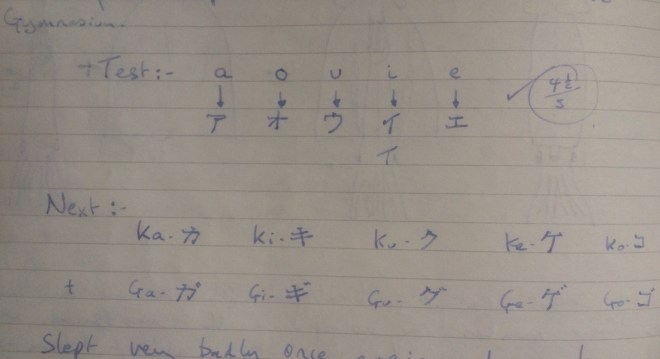 Gymnasium.
+Test:- a o u i e
ア オ ウ イ エ ✓ 4½/5
イ
Next:-
Ka-カ Ki-キ Ku-ク Ke-ケ Ko-コ
+ Ga-ガ Gi-ギ Gu-グ Ge-ゲ Go-ゴ
Slept very badly once again